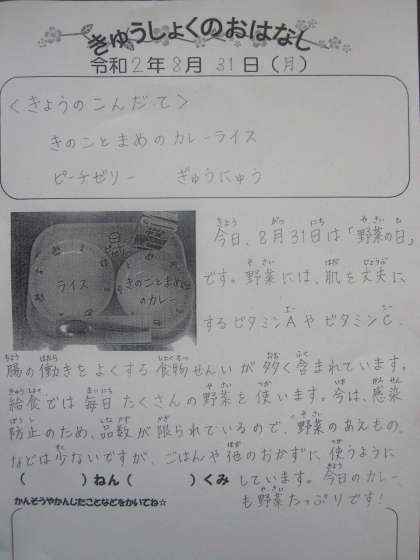 きゅうしょくのおはなし
令和2年8月31日(月)
<きょうのこんだて>
きのことまめのカレーライス
ピーチゼリー ぎゅうにゅう
ライス
きのことまめ
のカレー
今日、8月31日は「野菜の日」
です。野菜には、肌を丈夫に
するビタミンAやビタミンC、
腸の働きをよくする食物せんいが多く含まれています。
給食では毎日たくさんの野菜を使います。今は、感染
防止のため、品数が限られているので、野菜のあえもの
などは少ないですが、ごはんや他のおかずに使うように
( )ねん( )くみ しています。今日のカレー
かんそうやかんじたことなどをかいてね☆ も野菜たっぷりです!